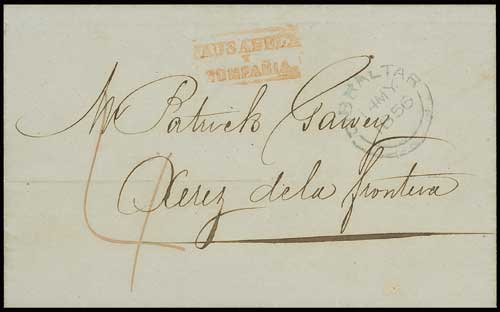 Y
COMPAÑIA
GIBRALTAR
MY
1856
Mr Patrick Garvey
Xerez de la frontera
4